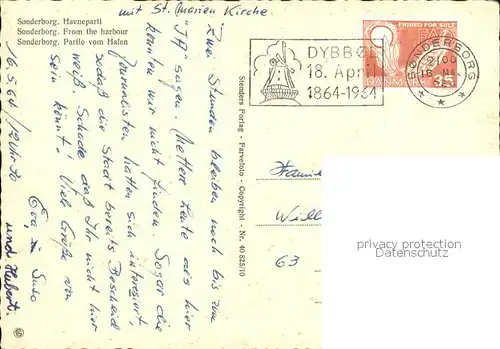 mit St. Marien Kirche.
Sønderborg. Havneparti
Sønderborg. From the harbour
Sønderborg. Partie vom Hafen
16.5.64 / 12 Uhr 30
Zwei Stunden bleiben noch bis zum
"JA" sagen. Nettere Leute als hier
könnten wir nicht finden. Sogar die
Journalisten hatten sich interessiert,
sodaß die Stadt bereits Bescheid
weiß. Schade daß Ihr nicht hier
sein könnt! Viele Grüße von
Eva
und Hubert.
Stenders Forlag - Farvefoto - Copyright - Nr. 40 825/10
DYBBØL
18. April
1864-1964
FRIHED FOR SULT
DANMARK
SØNDERBORG
Famili
63
privacy protection
Datenschutz